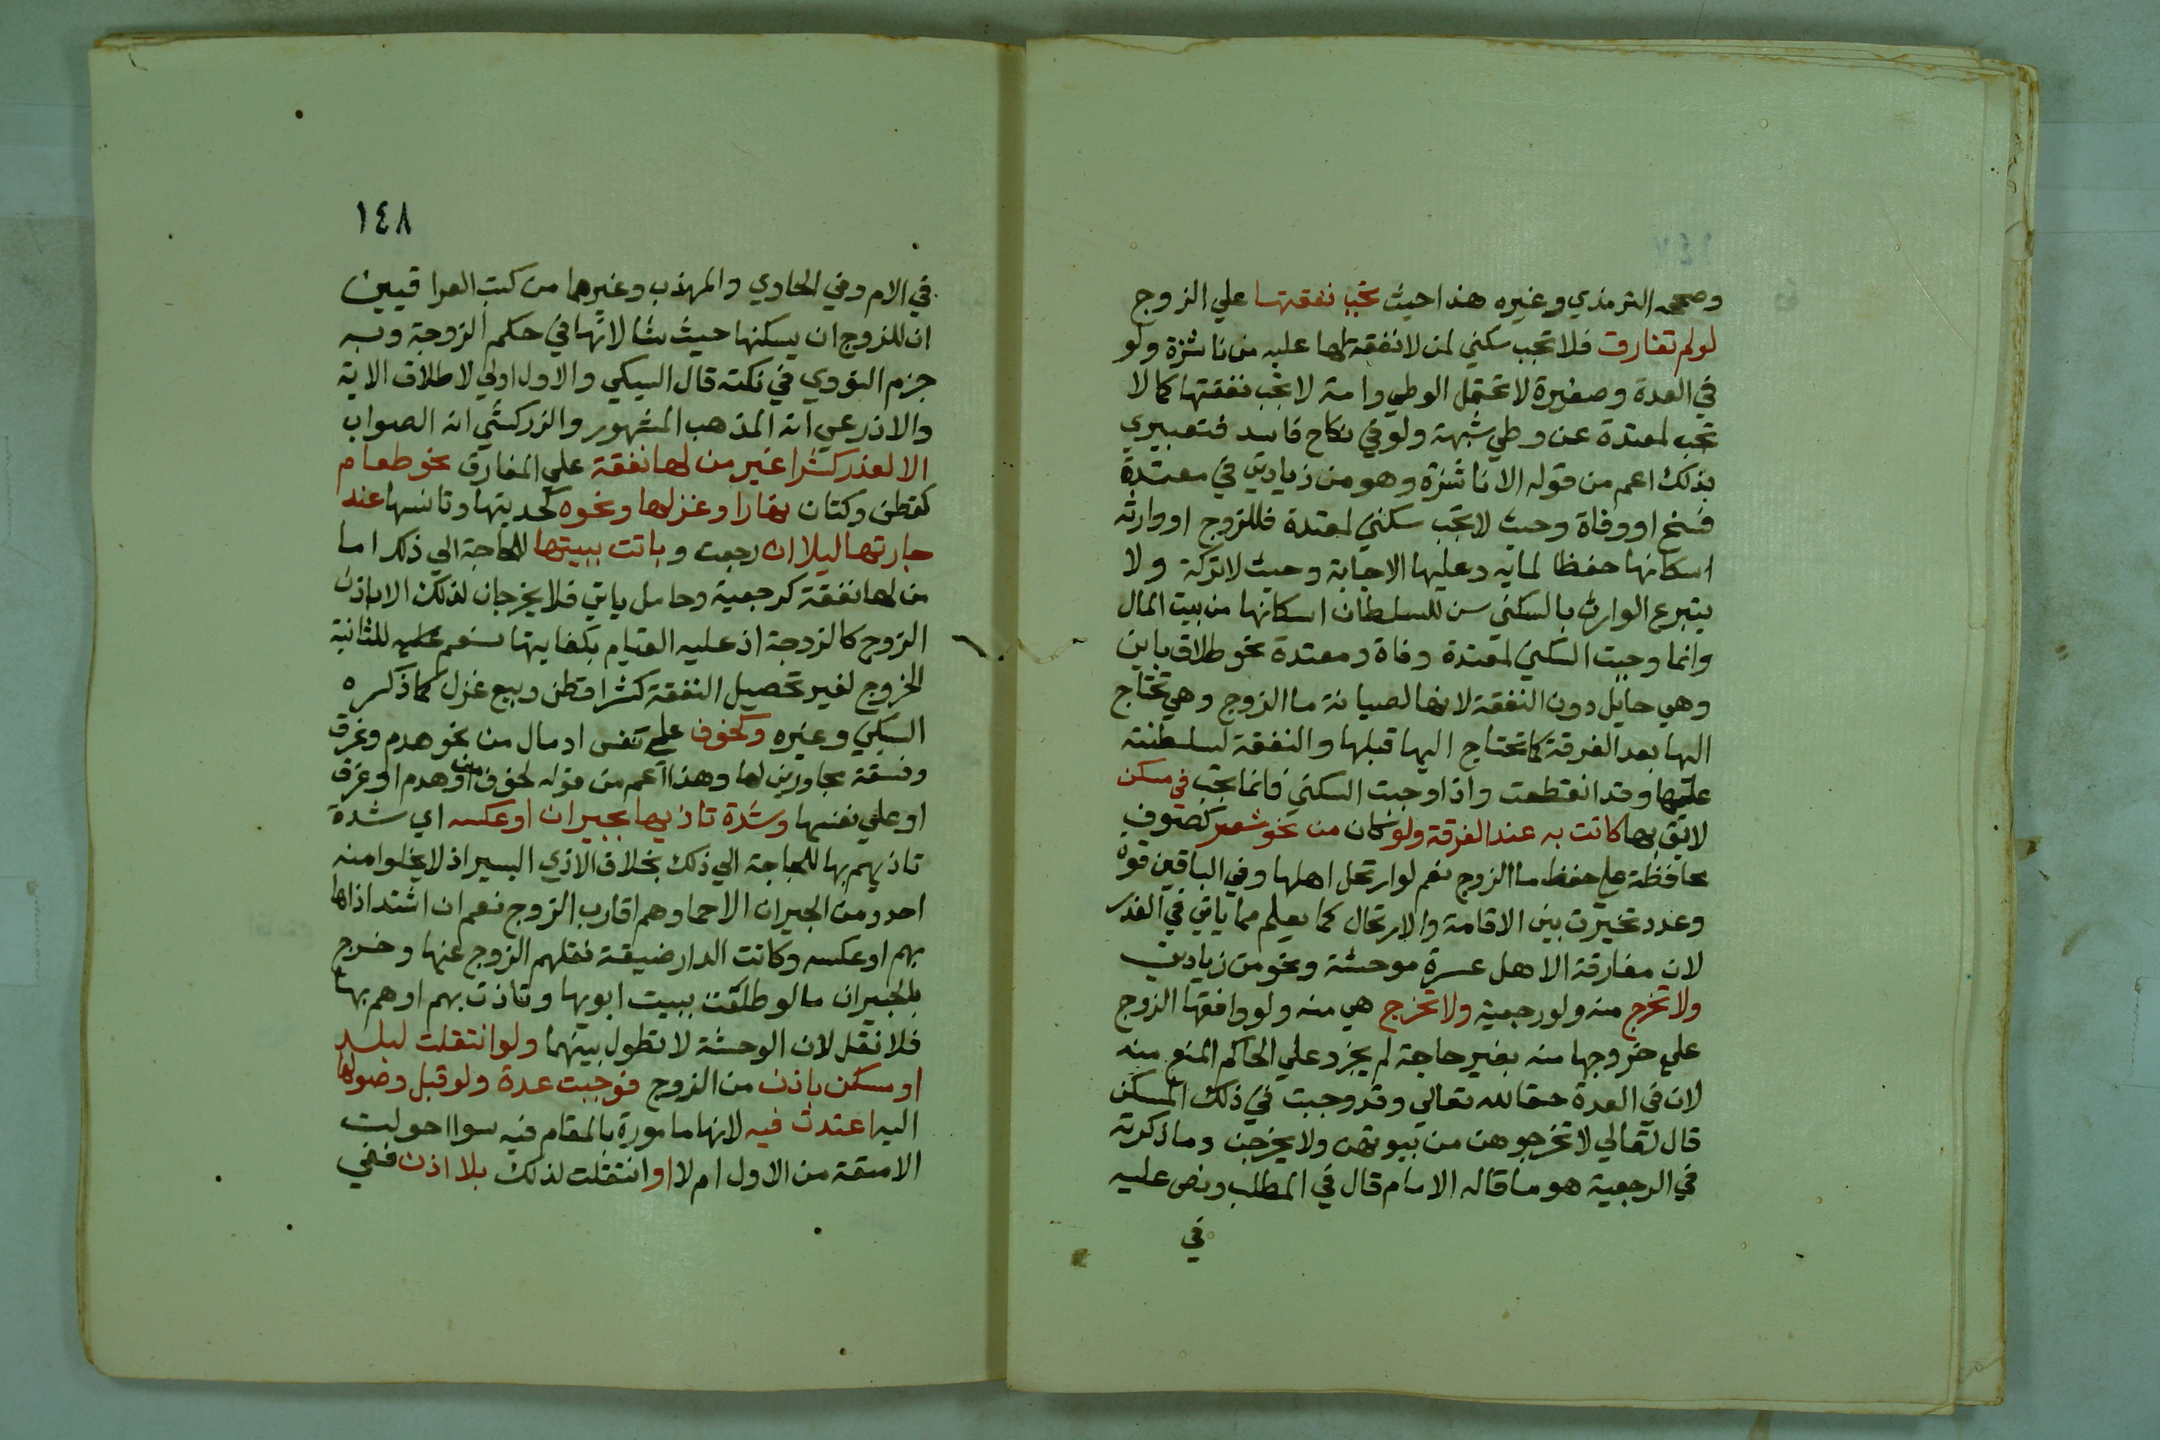 وصححه الترمذي وغيره هذا حيث تجب نفقتها علي الزوج
لو لم تفارق فلا تجب سكني لمن لا نفقة لها عليه من ناشزة ولو
في العدة وصغيرة لا تحتمل الوطي وامة لا تجب نفقتها كما لا
تجب لمعتدة عن وطي شبهة ولو في نكاح فاسد فتعبيري
بذلك اعم من قوله الا ناشزة وهو من زيادتي في معتدة
فسخ او وفاة وحيث لا تجب سكني لمعتدة فللزوج او وارثه
اسكانها حفظا لمايه وعليها الاجابة وحيث لا تركة ولا
يتبرع الوارث بالسكني سن للسلطان اسكانها من بيت المال
وانما وجبت السكني لمعتدة وفاة ومعتدة نحو طلاق باين
وهي حايل دون النفقة لانها لصيانة ما الزوج وهي تحتاج
اليها بعد الفرقة كما تحتاج اليها قبلها والنفقة لسلطنته
عليها وقد انقطعت واذا وجبت السكني فانما تجب في مسكن
لايق بها كانت به عند الفرقة ولو كان من نحو شعر كصوف
محافظة علي حفظ ما الزوج نعم لو ارتحل اهلها وفي الباقين قوة
وعدد تخيرت بين الاقامة والارتحال كما يعلم مما ياتي في العذر
لان مفارقة الاهل عسرة موحشة ونحو من زيادتي
ولا تخرج منه ولو رجعية ولا تخرج هي منه ولو وافقها الزوج
علي خروجها منه بغير حاجة لم يجز وعلي الحاكم المنع منه
لان في العدة حقا لله تعالي وقد وجبت في ذلك المسكن
قال تعالي لا تخرجوهن من بيوتهن ولا يخرجن وما ذكرته
في الرجعية هو ما قاله الامام قال في المطلب ونص عليه
في
١٤٨
في الام وفي الحاوي والمهذب وغيرهما من كتب العراقيين
ان للزوج ان يسكنها حيث شا لانها في حكم الزوجة وبه
جزم النووي في نكته قال السبكي والاول اولي لاطلاق الاية
والاذرعي انه المذهب المشهور والزركشي انه الصواب
الا لعذر كشرا غير من لها نفقة علي المفارق نحو طعام
كقطن وكتان نهارا وغزلها ونحوه كحديثها وتانسها عند
جارتها ليلا ان رجعت وباتت ببيتها للحاجة الي ذلك اما
من لها نفقة كرجعية وحامل باين فلا يخرجان لذلك الا باذن
الزوج كالزوجة اذ عليه القيام بكفايتها نعم للثانية
الخروج لغير تحصيل النفقة كشرا قطن وبيع غزل كما ذكره
السبكي وغيره وكخوف علي نفس او مال من نحو هدم وغرق
وفسقة مجاورين لها وهذا اعم من قوله لخوف من هدم او غرق
او علي نفسها وشدة تاذيها بجيران او عكسه اي شدة
تاذيهم بها للحاجة الي ذلك بخلاف الاذي اليسير اذ لا يخلو منه
احد ومن الجيران الاحما وهم اقارب الزوج نعم ان اشتد اذاها
بهم او عكسه وكانت الدار ضيقة نقلهم الزوج عنها وخرج
بالجيران ما لو طلقت ببيت ابويها وتاذت بهم او هم بها
فلا نقل لان الوحشة لا تطول بينهما ولو انتقلت لبلد
او مسكن باذن من الزوج فوجبت عدة ولو قبل وصولها
اليه اعتدت فيه لانها مامورة بالمقام فيه سوا احولت
الامتعة من الاول ام لا او انتقلت لذلك بلا اذن ففي